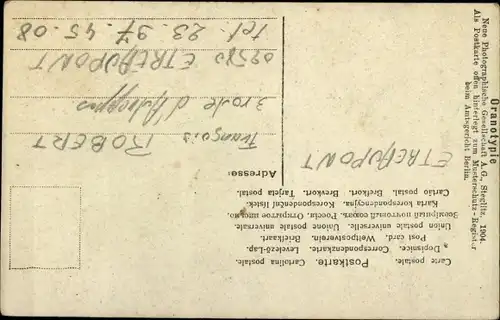 Oranotypie
Neue Photographische Gesellschaft A. G., Steglitz, 1904.
Als Postkarte offen hinterlegt zum Musterschutz-Register
beim Amtsgericht Berlin.
Carte postale. Postkarte. Cartolina postale.
Dopisnice. Correspondenzkarte. Levelező-Lap.
Post card. Weltpostverein. Briefkaart.
Union postale universelle. Unione postale universale.
Всемірный почтовый союзъ. Россія. Открытое письмо.
Karta korespondencyjna. Korespondenční lístek.
Cartão postal. Brefkort. Brevkort. Tarjeta postal.
Adresse:
ETREAUPONT
François ROBERT
3 route d'
02580 ETREAUPONT
tel. 23.97.45.08